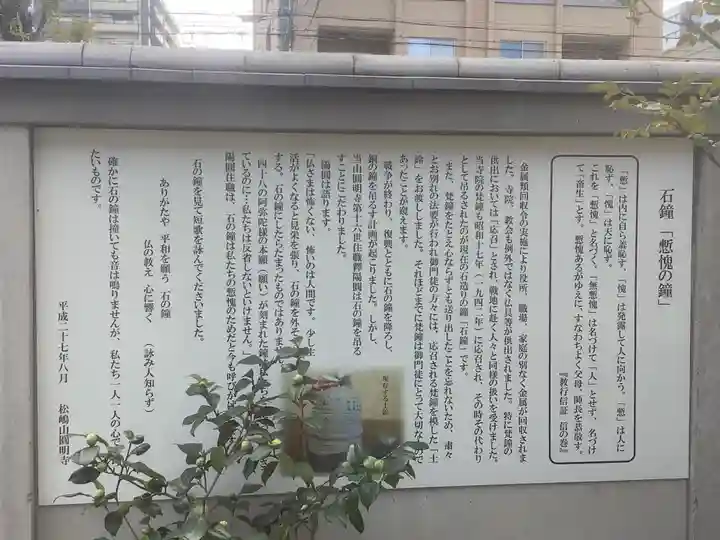 石鐘「慙愧の鐘」
「慙」は内に自ら羞恥す、「愧」は発露して人に向かう。「慙」は人に
恥ず、「愧」は天に恥ず。
これを「慙愧」と名づく。「無慙愧」は名づけて「人」とせず、名づけ
て「畜生」とす。慙愧あるがゆえに、すなわちよく父母、師長を恭敬す。
『教行信証 信の巻』
金属類回収令の実施により役所、職場、家庭の別なく金属が回収されま
した。寺院、教会も例外ではなく仏具等が供出されました。特に梵鐘の
供出においては「応召」とされ、戦地に赴く人々と同様の扱いを受けました。
当寺院の梵鐘も昭和十七年(一九四二年)に応召され、その時その代わり
として吊るされたのが現在の石造りの鐘「石鐘」です。
また、梵鐘をたとえ心ならずとも送り出したことを忘れないため、粛々
とお別れの法要が行われ御門徒の方々には、応召される梵鐘を模した「土
鈴」をお渡ししました。それほどまでに梵鐘は御門徒にとって大切なもので
あったことが窺えます。
戦争が終わり、復興とともに石の鐘を降ろし、
銅の鐘を吊るす計画が起こりました。しかし、
当山圓明寺第十六世住職釋陽圓は石の鐘を吊る
すことにこだわりました。
陽圓は語ります。
「仏さまは怖くない、怖いのは人間です。少し生
活がよくなると見栄を張り、石の鐘を外そ
する。石の鐘にしたらたまったものではありま
四十八の阿弥陀様の本願(願い)が刻まれた鐘
ているのに…私たちは反省しないといけません。
陽圓住職は、石の鐘は私たちの慙愧のためだと今も呼びか
石の鐘を見て短歌を詠んでくださいました。
ありがたや 平和を願う 石の鐘
仏の教え 心に響く (詠み人知らず)
確かに石の鐘は撞いても音は鳴りませんが、私たち一人一人の心で
たいものです。
平成二十七年八月 松嶋山圓明寺